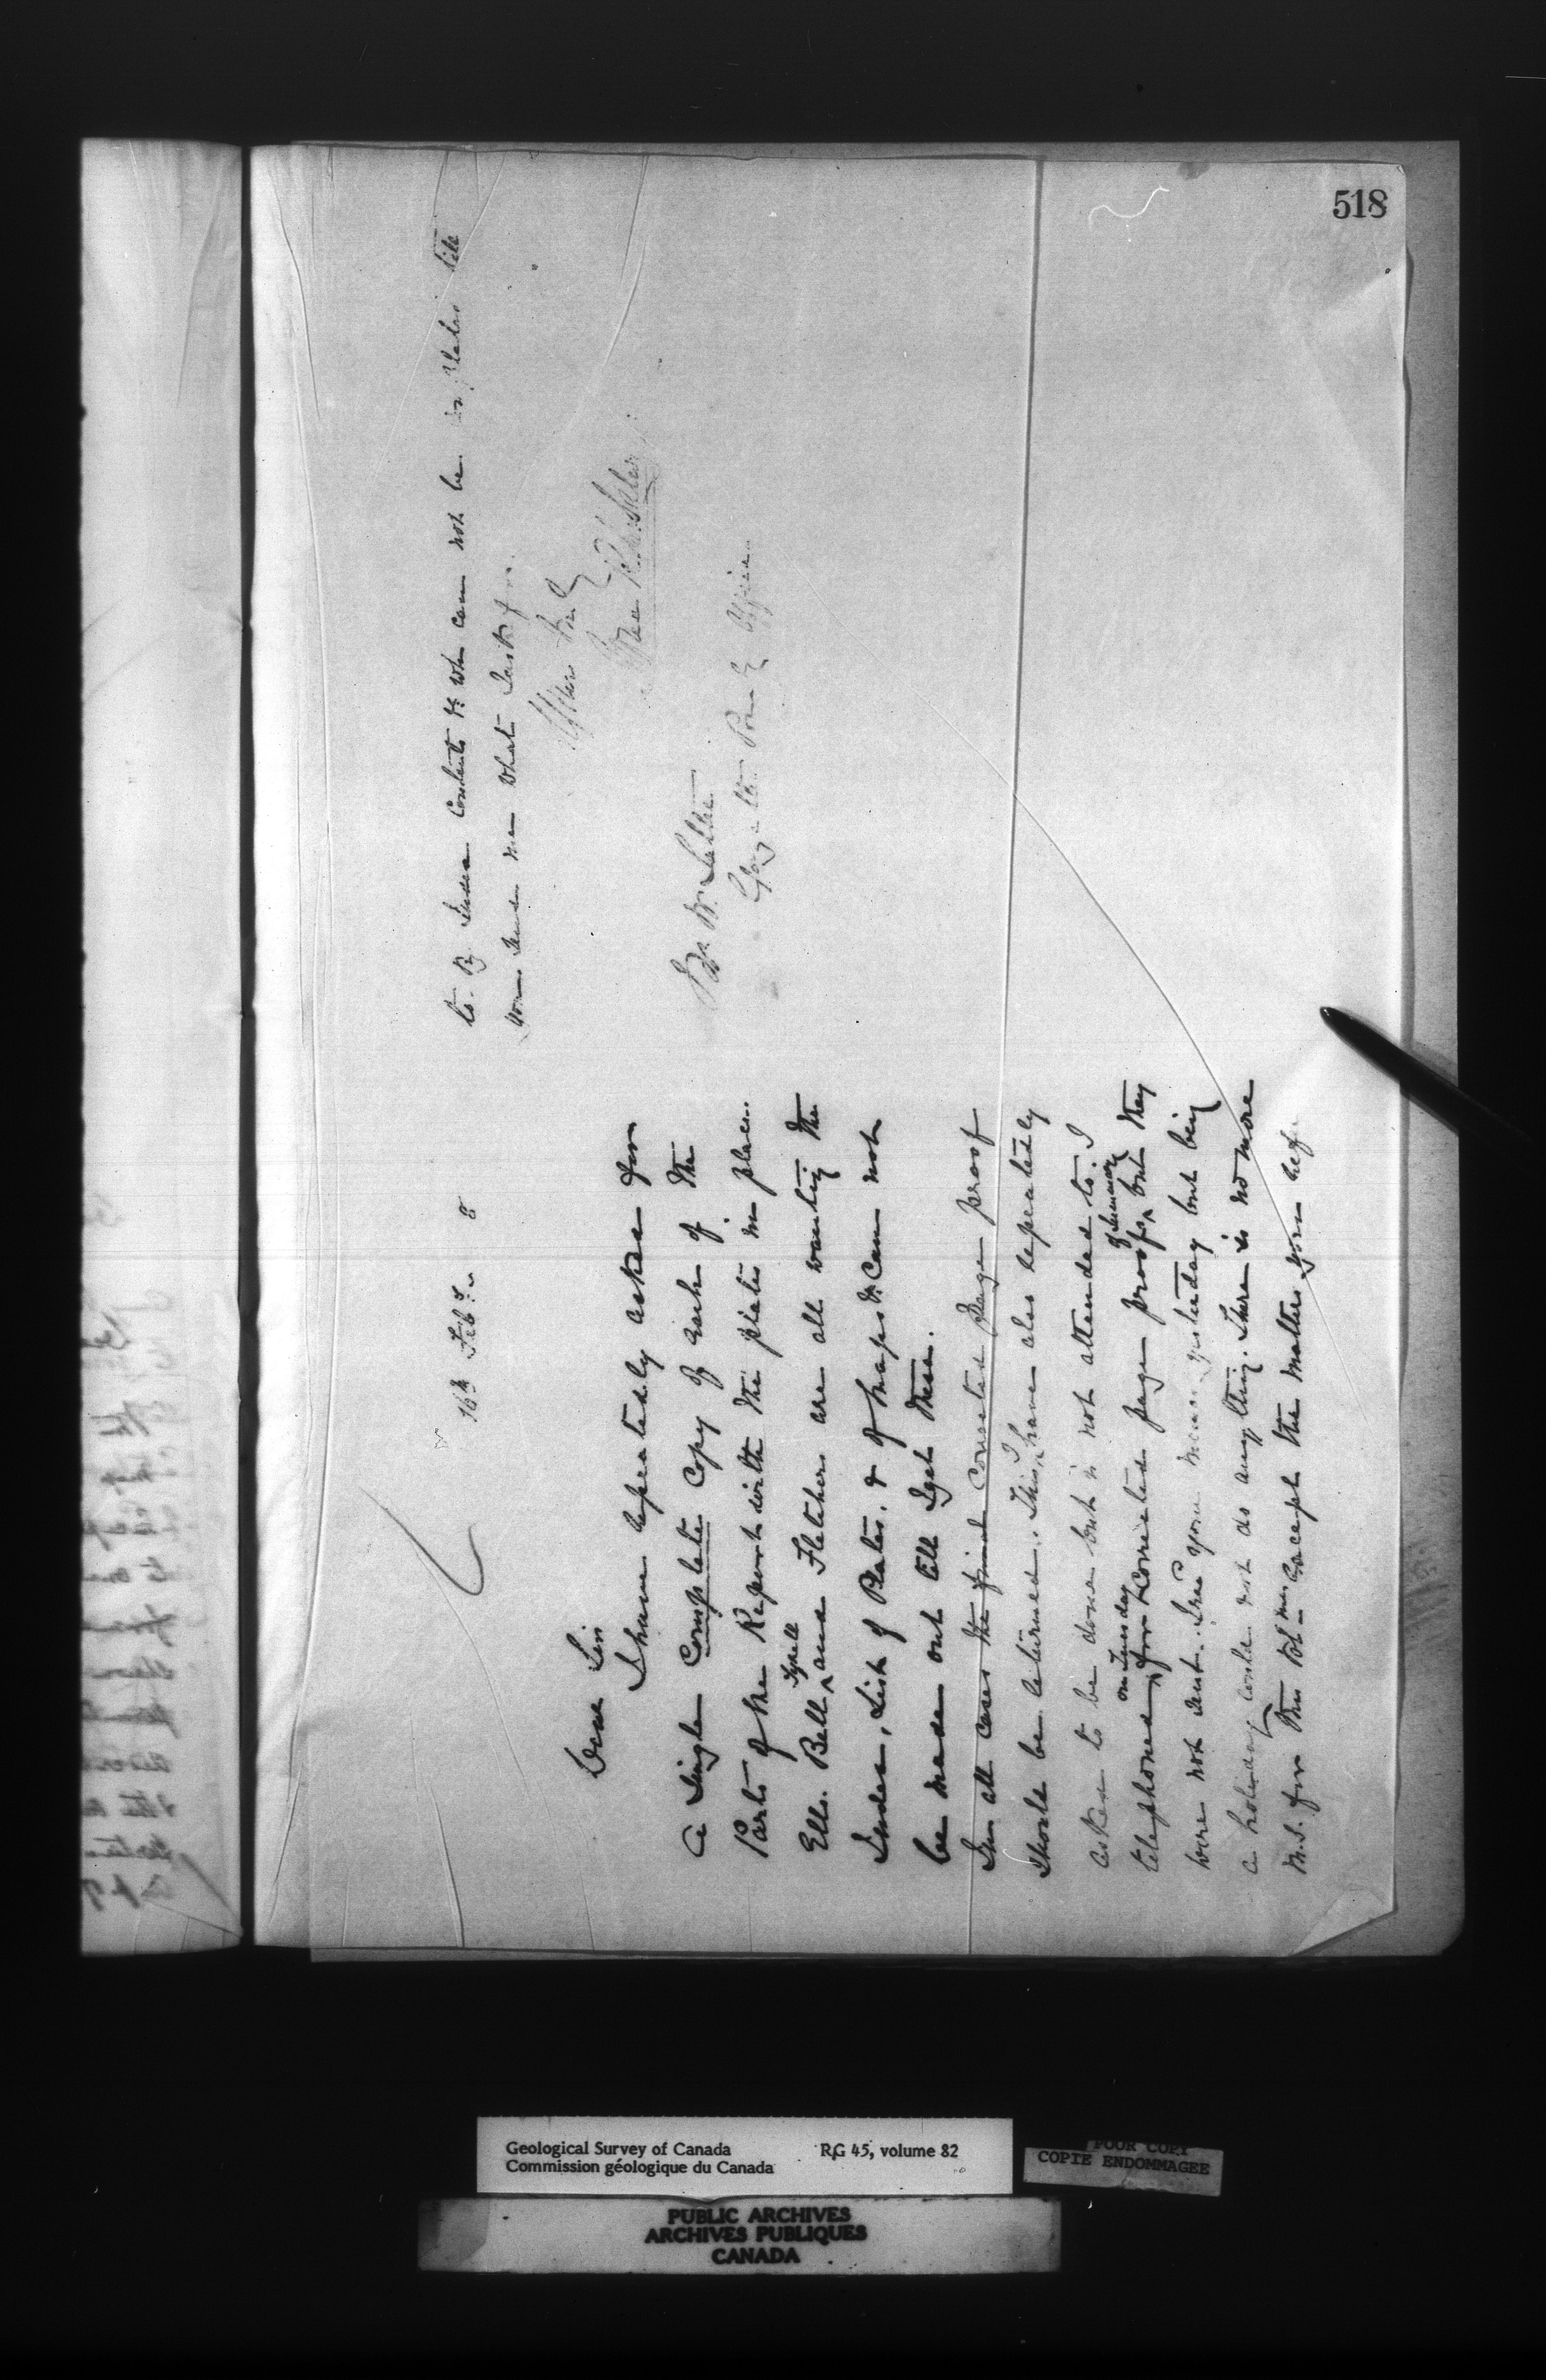 518
16th Feby 8
Dear Sir
I have repeatedly asked for
a Single Complete Copy of each of the
Parts of the Report with the plates in place.
Ells. Bell Tyrell and Fletchers are all wanting the
Index, List of Plates. & of Maps &c Can not
be made out till I get these.
In all cases the final Corrected page proof
Should be returned. This I have also repeatedly
asked to be done but is not attended to. I
telephoned on Tuesday for Corrected page proofs of Summary but they
were not sent. Your yesterday but being
a holiday could not do anything. There is no more
M.S. for this Vol. except the matter you
to. B Index Contents &c which can not be completed till
you send me what I ask for.
Yours truly
Mr W.
Office
Geological Survey of Canada RG 45, volume 82
Commission géologique du Canada
POOR COPY
COPIE ENDOMMAGEE
PUBLIC ARCHIVES
ARCHIVES PUBLIQUES
CANADA